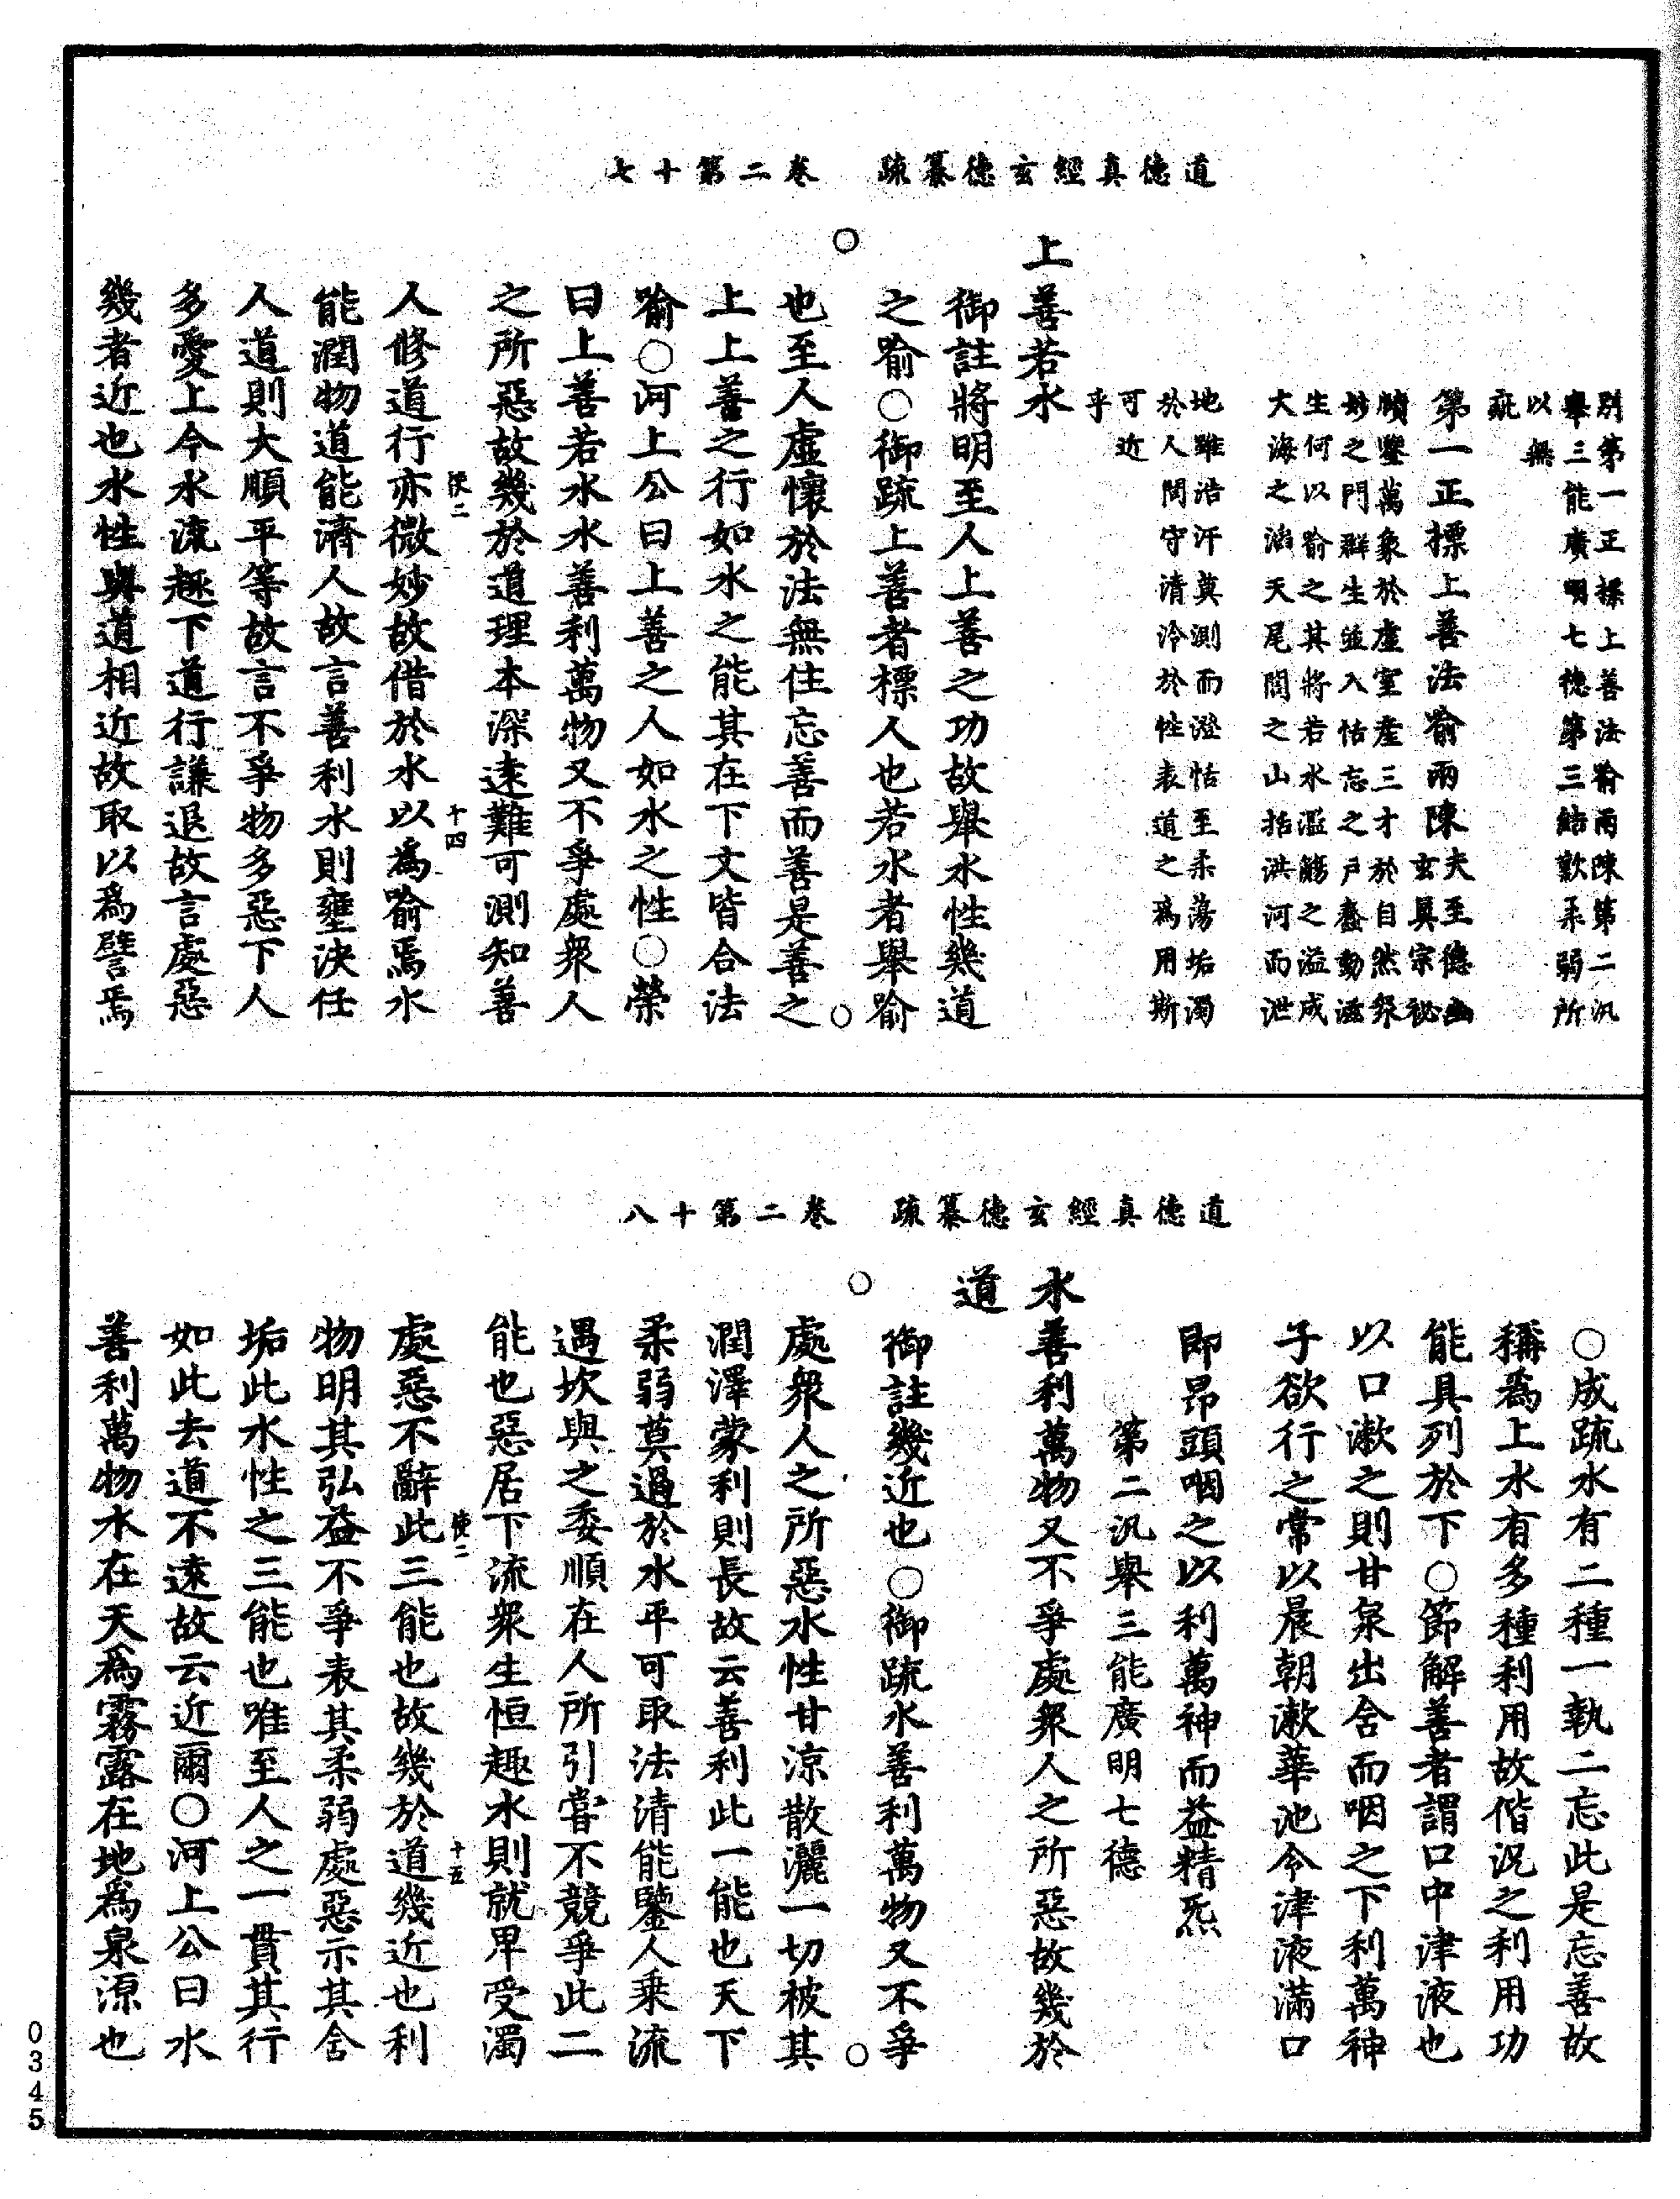 道德真經玄德纂疏　卷二第十七
別第一正標上善法喻兩陳第二汎
舉三能廣明七德第三結歎柔弱所
以無
疵
第一正標上善法喻兩陳
夫至德幽
玄真宗祕
賾鑒萬象於虛室產三才於自然衆
妙之門群生並入恬忘之戶蠢動滋
生何以喻之其將若水濫觴之溢成
大海之滔天尾閭之山括洪河而泄
地雖浩汗莫測而澄恬至柔蕩垢濁
於人間守清泠於性表道之爲用斯
可近
乎
上善若水
御註將明至人上善之功故舉水性幾道
之喻○御疏上善者標人也若水者舉喻
也至人虛懷於法無住忘善而善是善之
上上善之行如水之能其在下文皆合法
喻○河上公曰上善之人如水之性○榮
曰上善若水水善利萬物又不爭處衆人
之所惡故幾於道理本深遠難可測知善
人修道行亦微妙故借於水以爲喻焉水
使二
十四
能潤物道能濟人故言善利水則壅決任
人道則大順平等故言不爭物多惡下人
多愛上今水流趣下道行謙退故言處惡
幾者近也水性與道相近故取以爲譬焉
道德真經玄德纂疏　卷二第十八
○成疏水有二種一執二忘此是忘善故
稱爲上水有多種利用故偕況之利用功
能具列於下○節解善者謂口中津液也
以口漱之則甘泉出含而咽之下利萬神
子欲行之常以晨朝漱華池令津液滿口
即昂頭咽之以利萬神而益精炁
第二汎舉三能廣明七德
水善利萬物又不爭處衆人之所惡故幾於
道
御註幾近也○御疏水善利萬物又不爭
處衆人之所惡水性甘涼散灑一切被其
潤澤蒙利則長故云善利此一能也天下
柔弱莫過於水平可取法清能鑒人乘流
遇坎與之委順在人所引嘗不競爭此二
能也惡居下流衆生恒趣水則就卑受濁
處惡不辭此三能也故幾於道幾近也利
使二
十五
物明其弘益不爭表其柔弱處惡示其含
垢此水性之三能也唯至人之一貫其行
如此去道不遠故云近爾○河上公曰水
善利萬物水在天爲霧露在地爲泉源也
0345